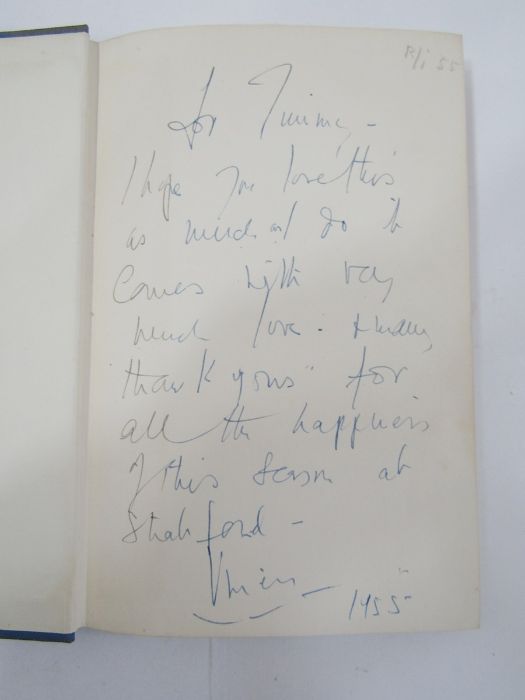 55
for Timmy -
I hope you love this
as much as I do it
comes with very
much love - & many
"thank yous" for
all the happiness
of this season at
Stratford -
Vivien -
1955